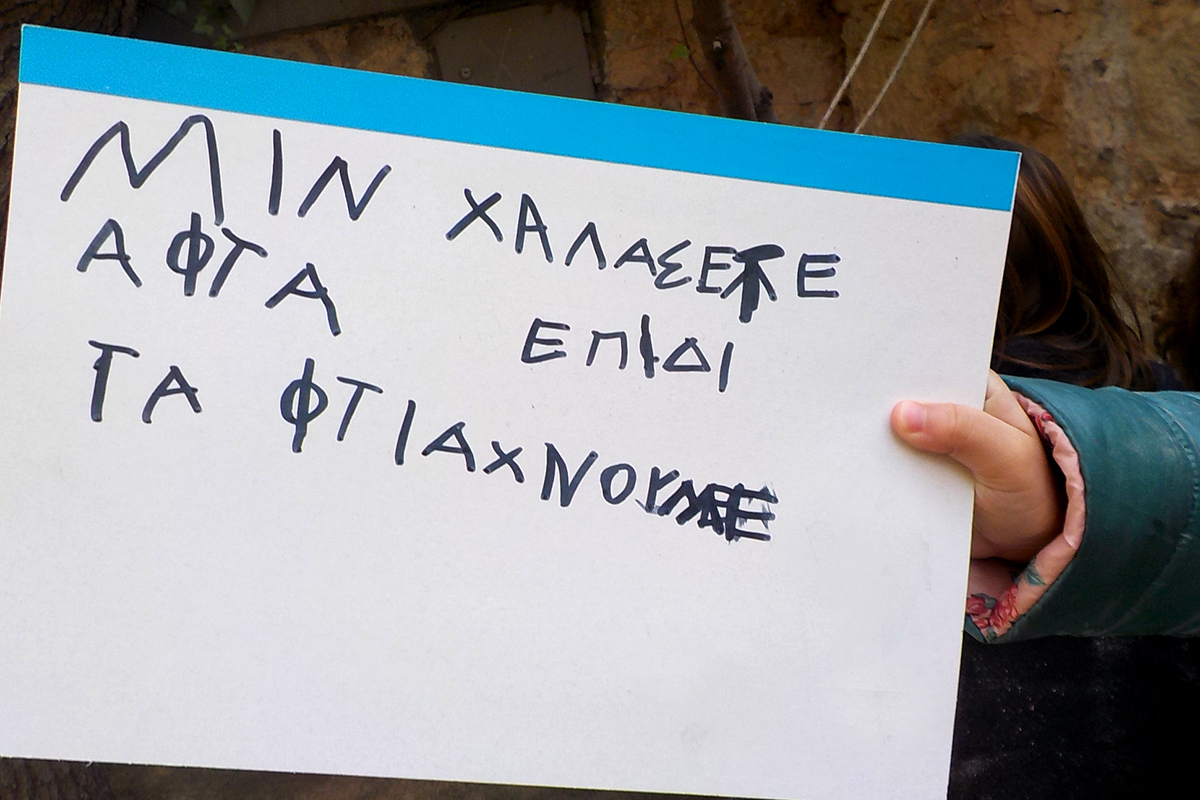 ΜΙΝ ΧΑΛΑΣΕΤΕ
ΑΦΤΑ ΕΠΙΔΙ
ΤΑ ΦΤΙΑΧΝΟΥΜΕ